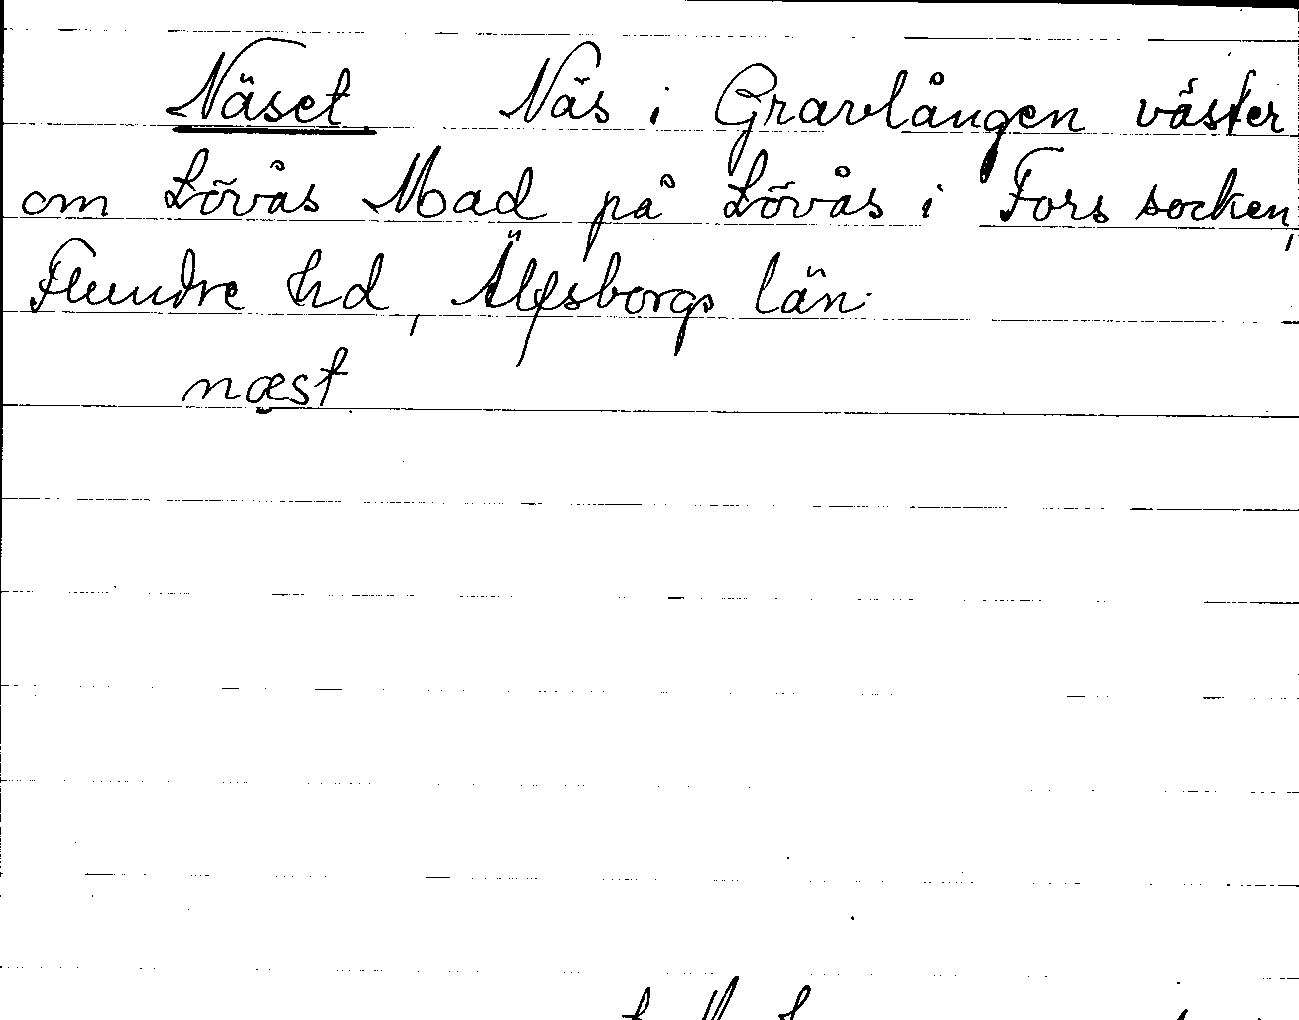 Näset Näs i Gravlången väster
om Lövås Mad på Lövås i Fors socken,
Flundre hd, Älfsborgs län.
næst